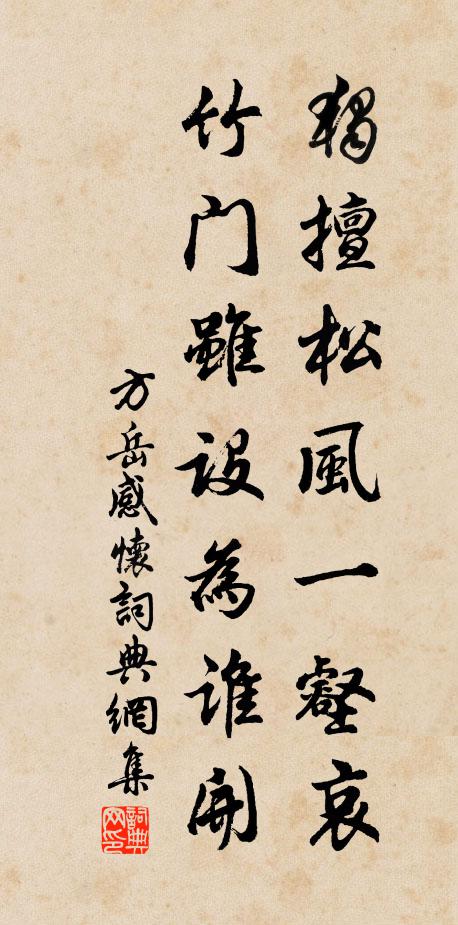 獨擅松風一壑哀
竹門雖設為誰開
方岳感懷詞典網集
詞典网印